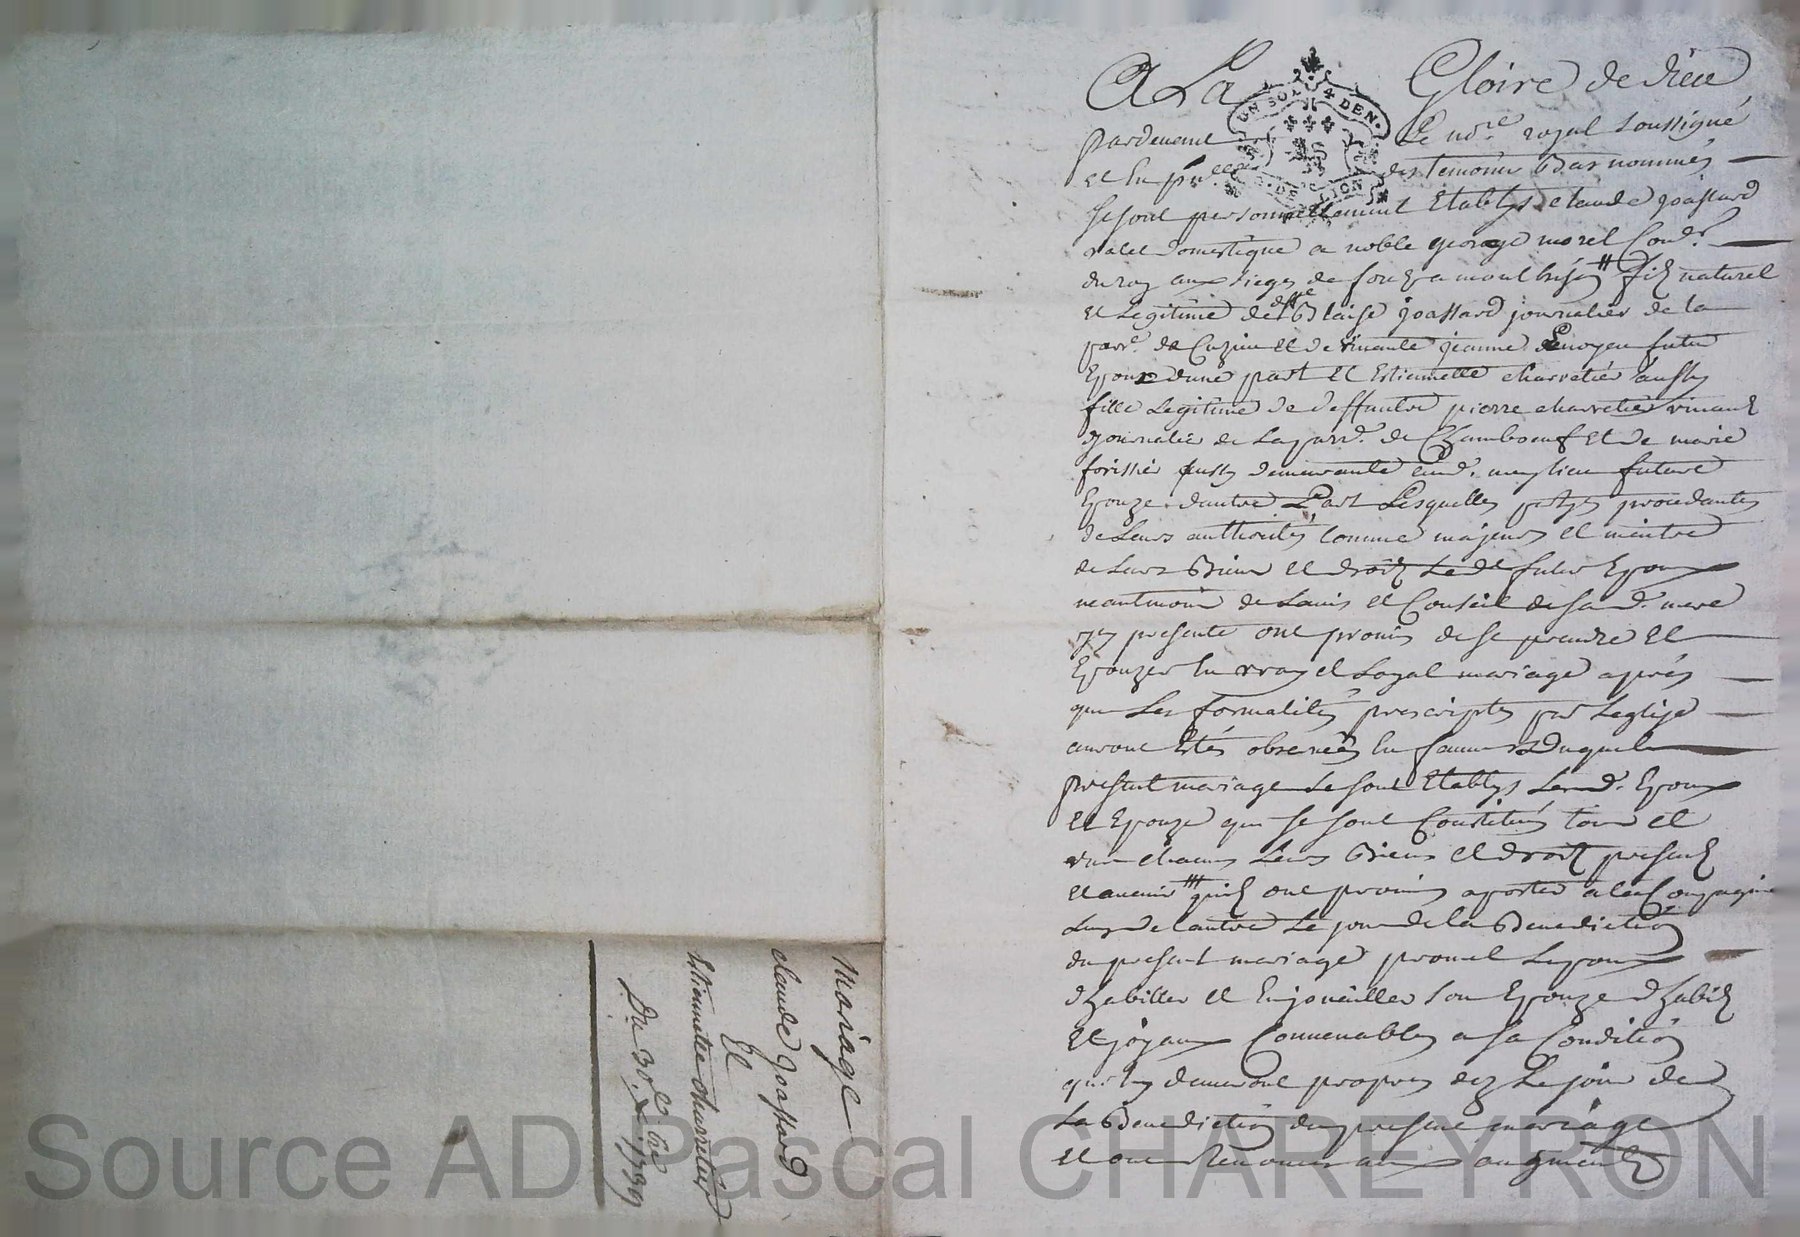 A La Gloire de Dieu
UN SOL 4 DEN.
pardevant Le no.re royal soussigné
et En p.nce des temoins Bas nommés
se sont personnellement Etablys claude joassard
valet domestique a noble george morel Con.er
du roy aux sieges de forez a montbrison fils naturel
et Legitime de deff.t Blaise joassard journalier de la
parr.e de Cuzieu et de vivante jeanne future
Epoux dune part et Estiennette charretié aussy
fille Legitime de deffuntre pierre charretié vivant
journalie de Laparr.e de Chamboeuf et de marie
forissié aussy demeurante aud. mesme lieu future
Epouze dautre Part Lesquelles partyes procedantes
de Leurs authorités Comme majeurs et maitre
de Leurs Biens et droits Led.t futur Epoux
neantmoins de Lavis et Conseil de sa d. mere
ycy presente ont promis de se prendre et
Epouzer En vray et Loyal mariage aprés
que Les formalités prescriptes par Leglize
auront Estés observées En faveur Duquel
present mariage se sont Etablys Lesd. Epoux
et Epouze qui se sont Constitués tous et
un chacuns Leurs Biens et droits presents
et avenir quils ont promis aporter a la Compagnie
Lun de lautre Le jour de la Benediction
du present mariage promet Lepoux
dhabiller et Enjoueiller son Epouze dhabits
et joyaux Convenables a sa Condition
qui luy demeuront propres dez Le jour de
La Benediction du present mariage
et ont Renoncé aux augments
Mariage
claude Joassard
Et
Estiennette charretier
Du 30.e 1739
Source AD Pascal CHAREYRON